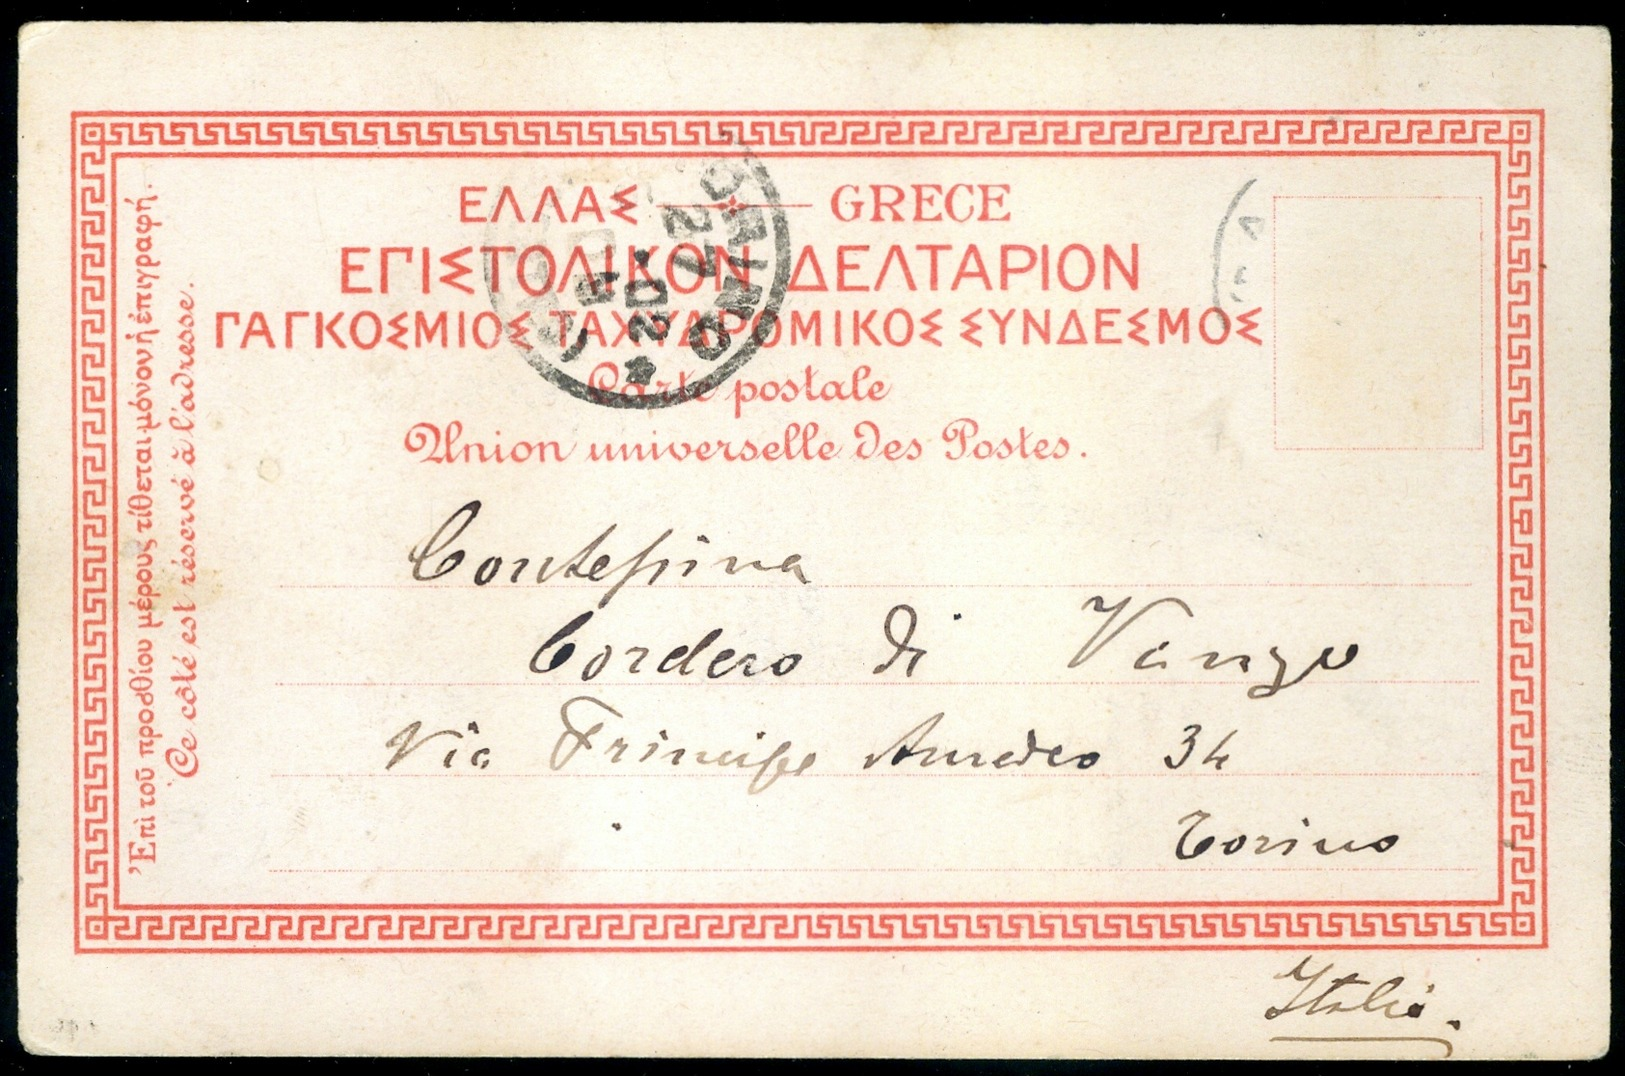 ΕΛΛΑΣ — GRECE
ΕΠΙΣΤΟΛΙΚΟΝ ΔΕΛΤΑΡΙΟΝ
ΠΑΓΚΟΣΜΙΟΣ ΤΑΧΥΔΡΟΜΙΚΟΣ ΣΥΝΔΕΣΜΟΣ
Carte postale
Union universelle des Postes.
Ἐπὶ τοῦ προσθίου μέρους τίθεται μόνον ἡ ἐπιγραφή.
Ce côté est réservé à l'adresse.
TORINO
27
20
Contessina
Cordero di Vonzo
Via Principe Amedeo 34
Torino
Italia.